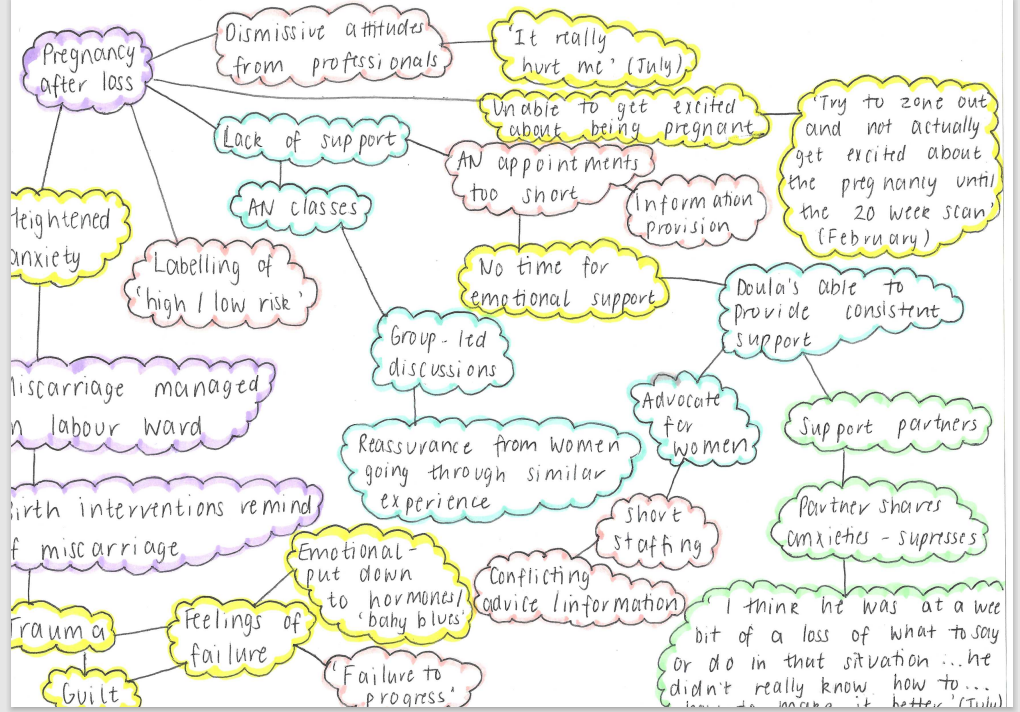 Pregnancy
after loss
Dismissive attitudes
from professionals
'It really
hurt me' (July)
Unable to get excited
about being pregnant
'Try to zone out
and not actually
get excited about
the pregnancy until
the 20 week scan'
(February)
Lack of support
AN appointments
too short
Information
provision
AN classes
Heightened
anxiety
Labelling of
'high / low risk'
No time for
emotional support
Doula's able to
provide consistent
support
Group-led
discussions
Advocate
for
women
Support partners
Miscarriage managed
in labour ward
Reassurance from women
going through similar
experience
Birth interventions remind
of miscarriage
Short
staffing
Partner shares
anxieties - supresses
Emotional -
put down
to hormones/
'baby blues'
Conflicting
advice /information
Trauma
Feelings of
failure
Guilt
'Failure to
progress'
'I think he was at a wee
bit of a loss of what to say
or do in that situation ... he
didn't really know how to...
how to make it better' (July)